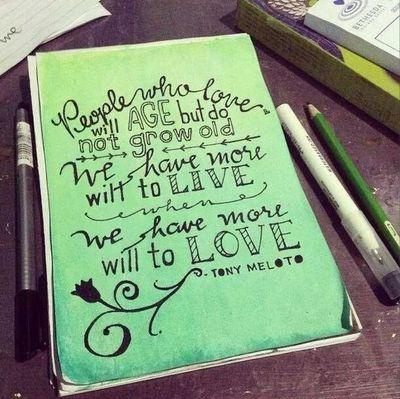 People who love
will AGE but do
not grow old
We have more
will to LIVE
when
we have more
will to LOVE
- TONY MELOTO
me
BETHESDA